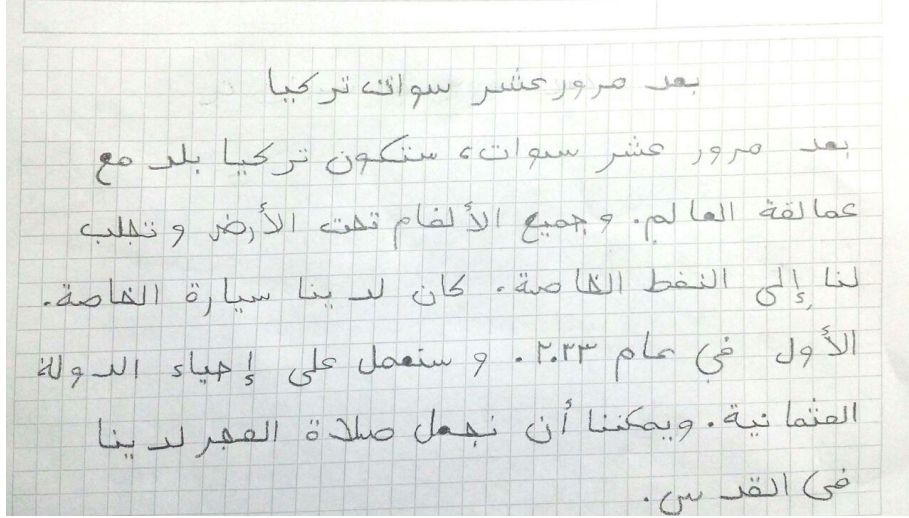 بعد مرور عشر سوات تركيا
بعد مرور عشر سوات، ستكون تركيا بلد مع
عمالقة العالم. وجميع الألغام تحت الأرض وتجلب
لنا إلى النفط الخاصة. كان لدينا سيارة الخاصة.
الأول في عام ٢٠٢٣. وسنعمل على إحياء الدولة
العثمانية. ويمكننا أن نجعل صلاة الفجر لدينا
في القدس.